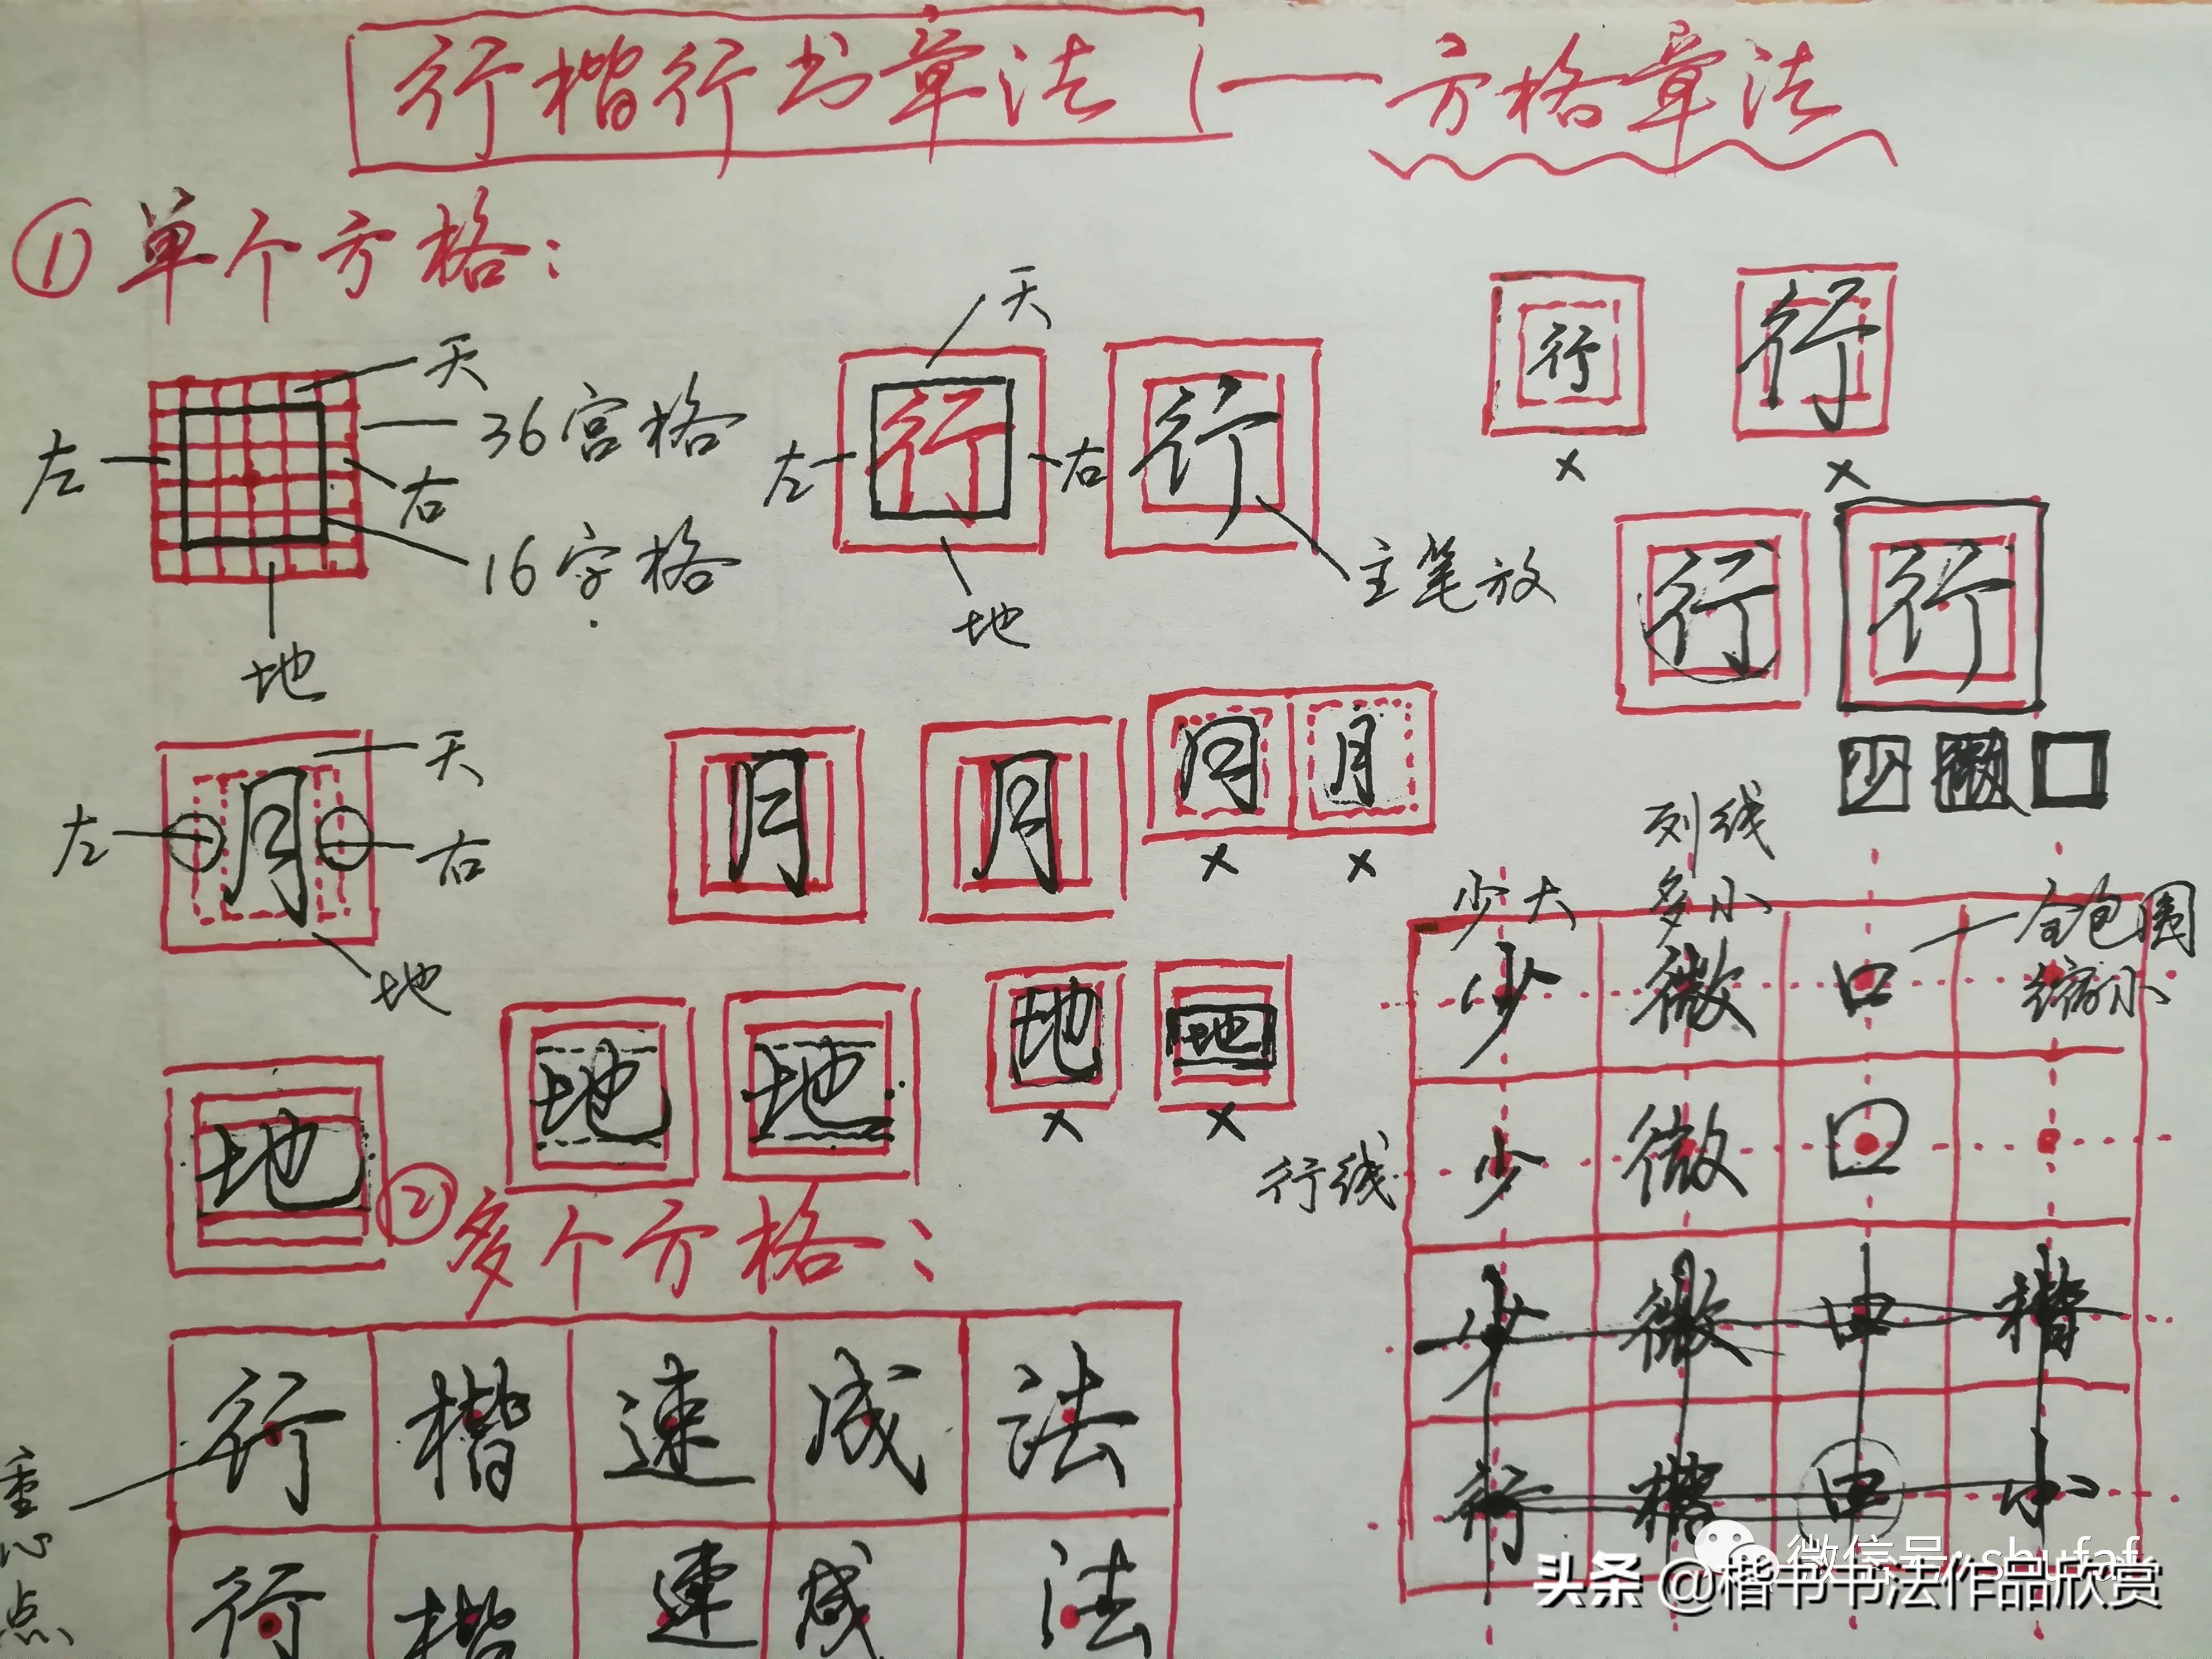 行楷行书章法——方格章法
①单个方格：
天
36宫格
左
右
16字格
地
天
左
行
右
地
行
主笔放
行
×
行
×
行
行
天
左
月
右
地
月
月
月
月
×
×
少
微
口
地
地
地
地
×
地
×
②多个方格：
行 楷 速 成 法
重心点
行 楷 速 成 法
列线
少大
多小
全包围
缩小
少 微 口
行线
少 微 口
少 微 中 楷
行 楷 中 小
微信号: shufaf
头条 @楷书书法作品欣赏